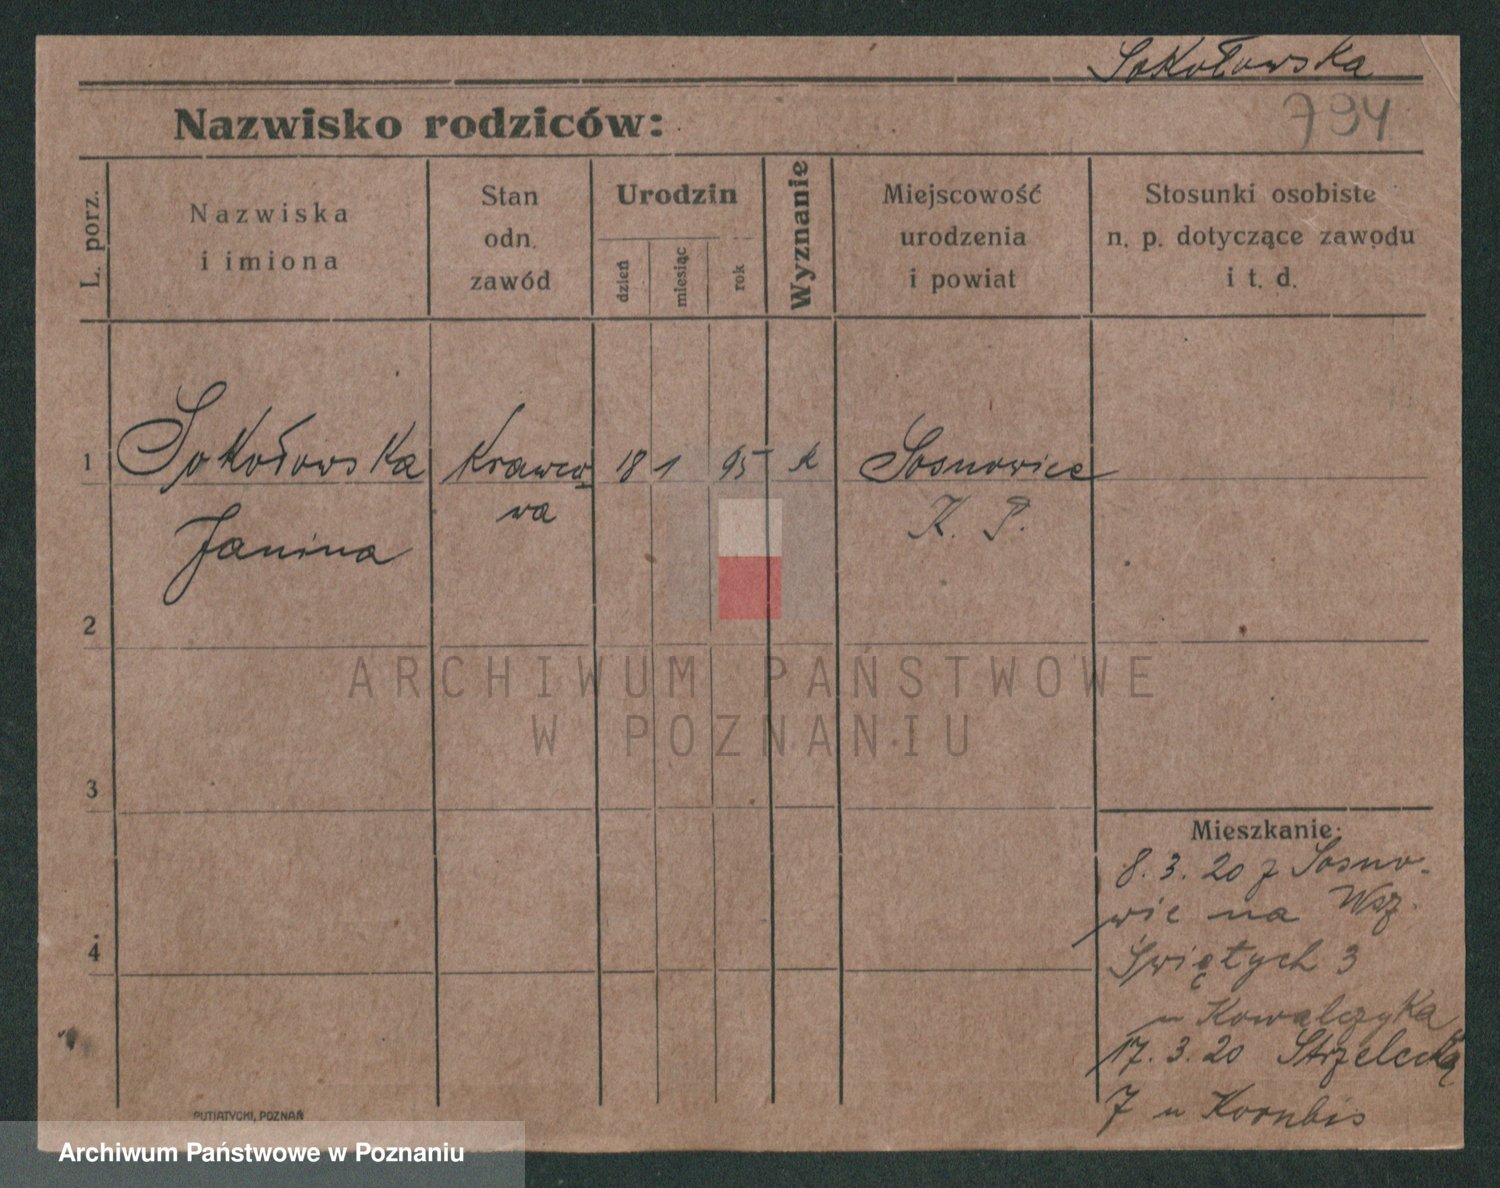 Sokołowska
794
Nazwisko rodziców:
L. porz.
Nazwiska
i imiona
Stan
odn.
zawód
Urodzin
dzień
miesiąc
rok
Wyznanie
Miejscowość
urodzenia
i powiat
Stosunki osobiste
n. p. dotyczące zawodu
i t. d.
1 Sokołowska Krawco 18 1 95 k Sosnowice
Janina wa K. P.
2
3
4
ARCHIWUM PAŃSTWOWE
W POZNANIU
Mieszkanie:
8. 3. 20 z Sosno-
wic na Wsz.
Świętych 3
u Kowalczyka
17. 3. 20 Strzelecka
7 u
PUTIATYCKI, POZNAŃ
Archiwum Państwowe w Poznaniu